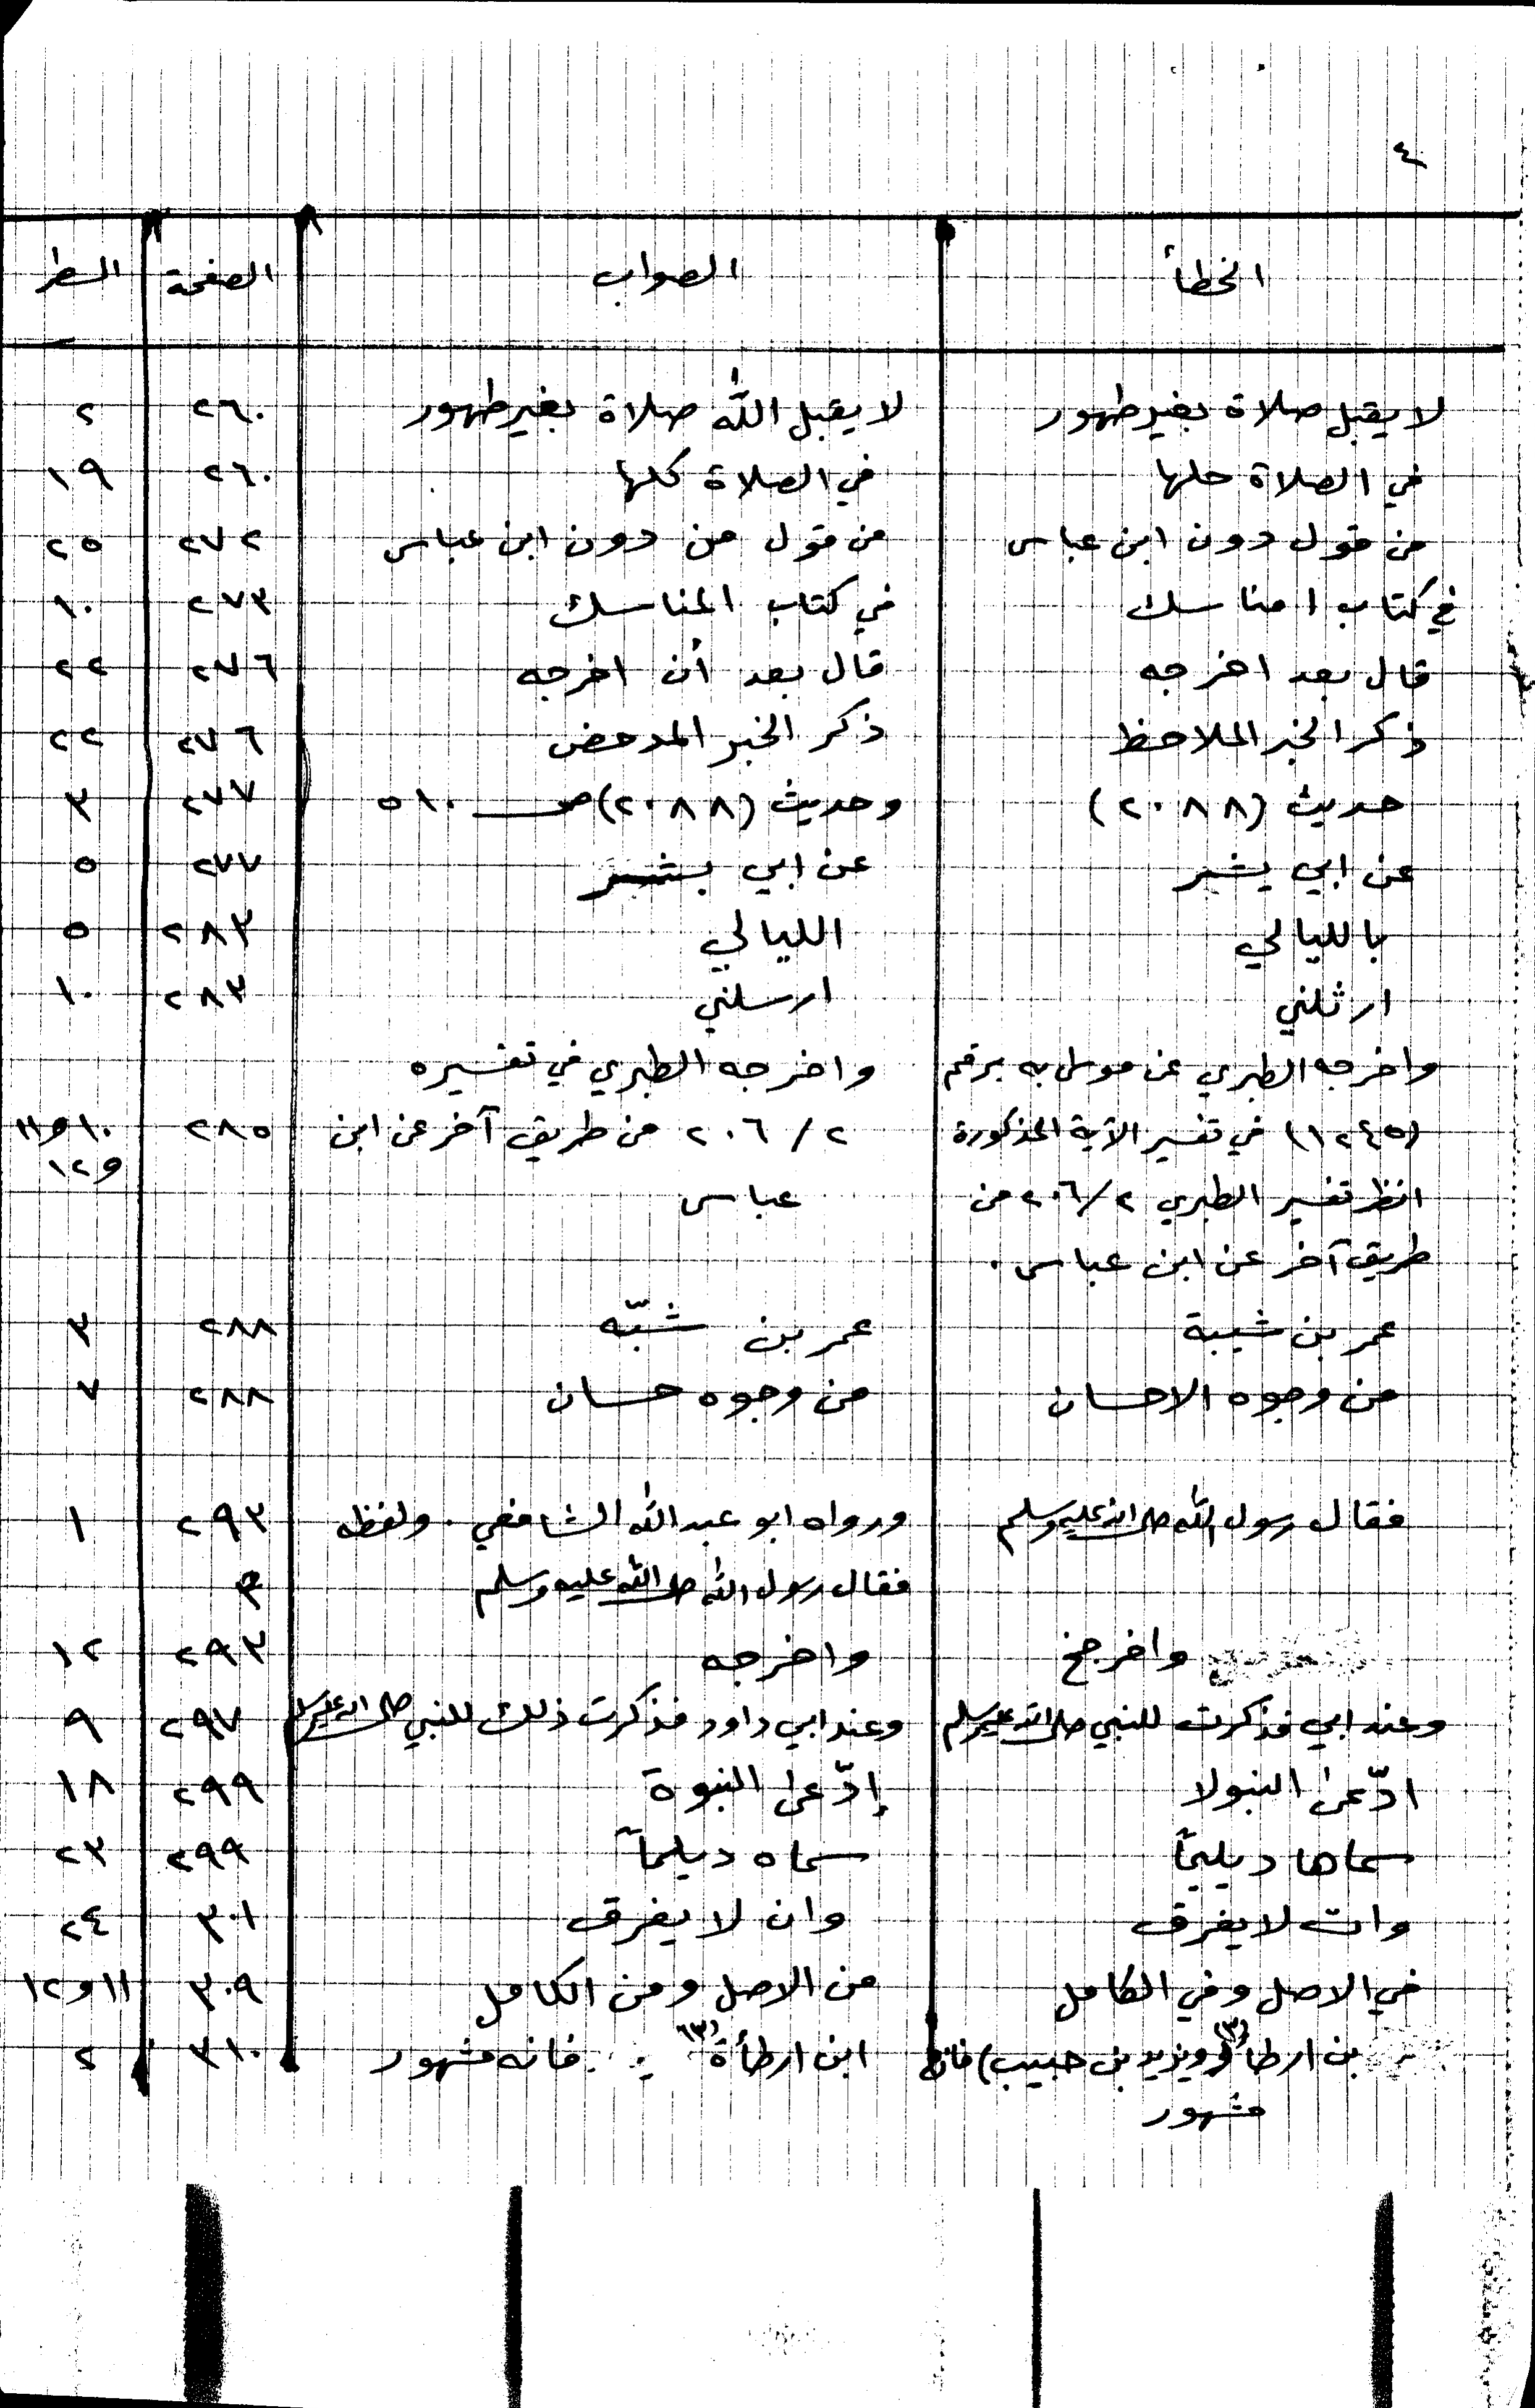 ٤
الخطأ الصواب الصفحة السطر
لا يقبل صلاة بغير طهور لا يقبل الله صلاة بغير طهور ٢٦٠ ٢
في الصلاة حلها في الصلاة كلها ٢٦٠ ١٩
من قول دون ابن عباس من قول من دون ابن عباس ٢٧٢ ٢٥
في كتاب امناسك في كتاب المناسك ٢٧٣ ١٠
قال بعد اخرجه قال بعد أن اخرجه ٢٧٦ ٢٢
ذكر الخبر الملاحظ ذكر الخبر المدحض ٢٧٦ ٢٢
حديث (٢٠٨٨) وحديث (٢٠٨٨) ص ٥١٠ ٢٧٧ ٣
عن ابي يشبر عن ابي بشر ٢٧٧ ٥
بالليالي الليالي ٢٨٣ ٥
ارثلني ارسلني ٢٨٣ ١٠
واخرجه الطبري عن موسى به برقم واخرجه الطبري في تفسيره
(١٢٤٥) في تفسير الآية المذكورة ٢/٢٠٦ من طريق آخر عن ابن ٢٨٥ ١٠ و١١
و١٢
انظر تفسير الطبري ٢/٢٠٦ من عباس
طريق آخر عن ابن عباس .
عمر بن شيبة عمر بن شبّه ٢٨٨ ٣
من وجوه الاحسان من وجوه حسان ٢٨٨ ٧
فقال رسول الله صلى الله عليه وسلم ورواه ابو عبد الله الشافعي . ولفظه ٢٩٣ ١
فقال رسول الله صلى الله عليه وسلم
واخرجخ واخرجه ٢٩٣ ١٢
وعند ابي فذكرت للنبي صلى الله عليه وسلم وعند ابي داود فذكرت ذلك للنبي صلى الله عليه وسلم ٢٩٧ ٩
ادّعى النبولا إدّعى النبوة ٢٩٩ ١٨
سماها ديليماً سماه ديلماً ٢٩٩ ٢٣
وات لا يفرق وان لا يفرق ٣٠١ ٢٤
في الاصل وفي الكامل من الاصل ومن الكامل ٣٠٩ ١١ و١٢
بن ارطا(٣) ويزيد بن حبيب) فانه ابن ارطأة(٣) فانه مشهور ٣١٠ ٢
مشهور